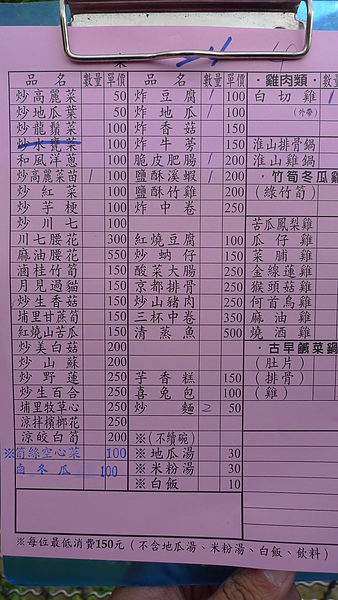 品名 數量 單價 數量 單價 ·雞肉類·
炒高麗菜 50 炸豆腐 / 100 白切雞
炒地瓜葉 50 炸地瓜 / 100 (外帶)
炒龍鬚菜 100 炸香菇 150
炒水甕菜 炸牛蒡 150 淮山排骨鍋
和風洋蔥 100 脆皮肥腸 / 200 淮山雞鍋
炒高麗菜苗 / 100 鹽酥溪蝦 / 200 ·竹筍冬瓜雞
炒紅菜 100 鹽酥竹雞 200 (綠竹筍)
炒芋梗 100 炸中卷 250
炒川七 100 苦瓜鳳梨雞
川七腰花 300 紅燒豆腐 100 瓜仔雞
麻油腰花 550 炒蚋仔 150 菜脯雞
滷桂竹筍 150 酸菜大腸 250 金線蓮雞
月見過貓 150 京都排骨 250 猴頭菇雞
炒生香菇 150 炒山豬肉 250 何首烏雞
埔里甘蔗筍 150 三杯中卷 350 麻油雞
紅燒山苦瓜 150 清蒸魚 500 燒酒雞
炒美白菇 200 ·古早鹹菜鍋
炒山蘇 200 (肚片)
炒野蓮 250 芋香糕 150 (排骨)
炒生百合 250 喜兔包 100 (雞)
埔里牧草心 250 炒麵 2 50
涼拌檳榔花 250
涼皎白筍 200 ※(不續碗)
※筍絲空心菜 100 ※地瓜湯 30
滷冬瓜 100 ※米粉湯 30
※白飯 10
※每位最低消費150元（不含地瓜湯、米粉湯、白飯、飲料）